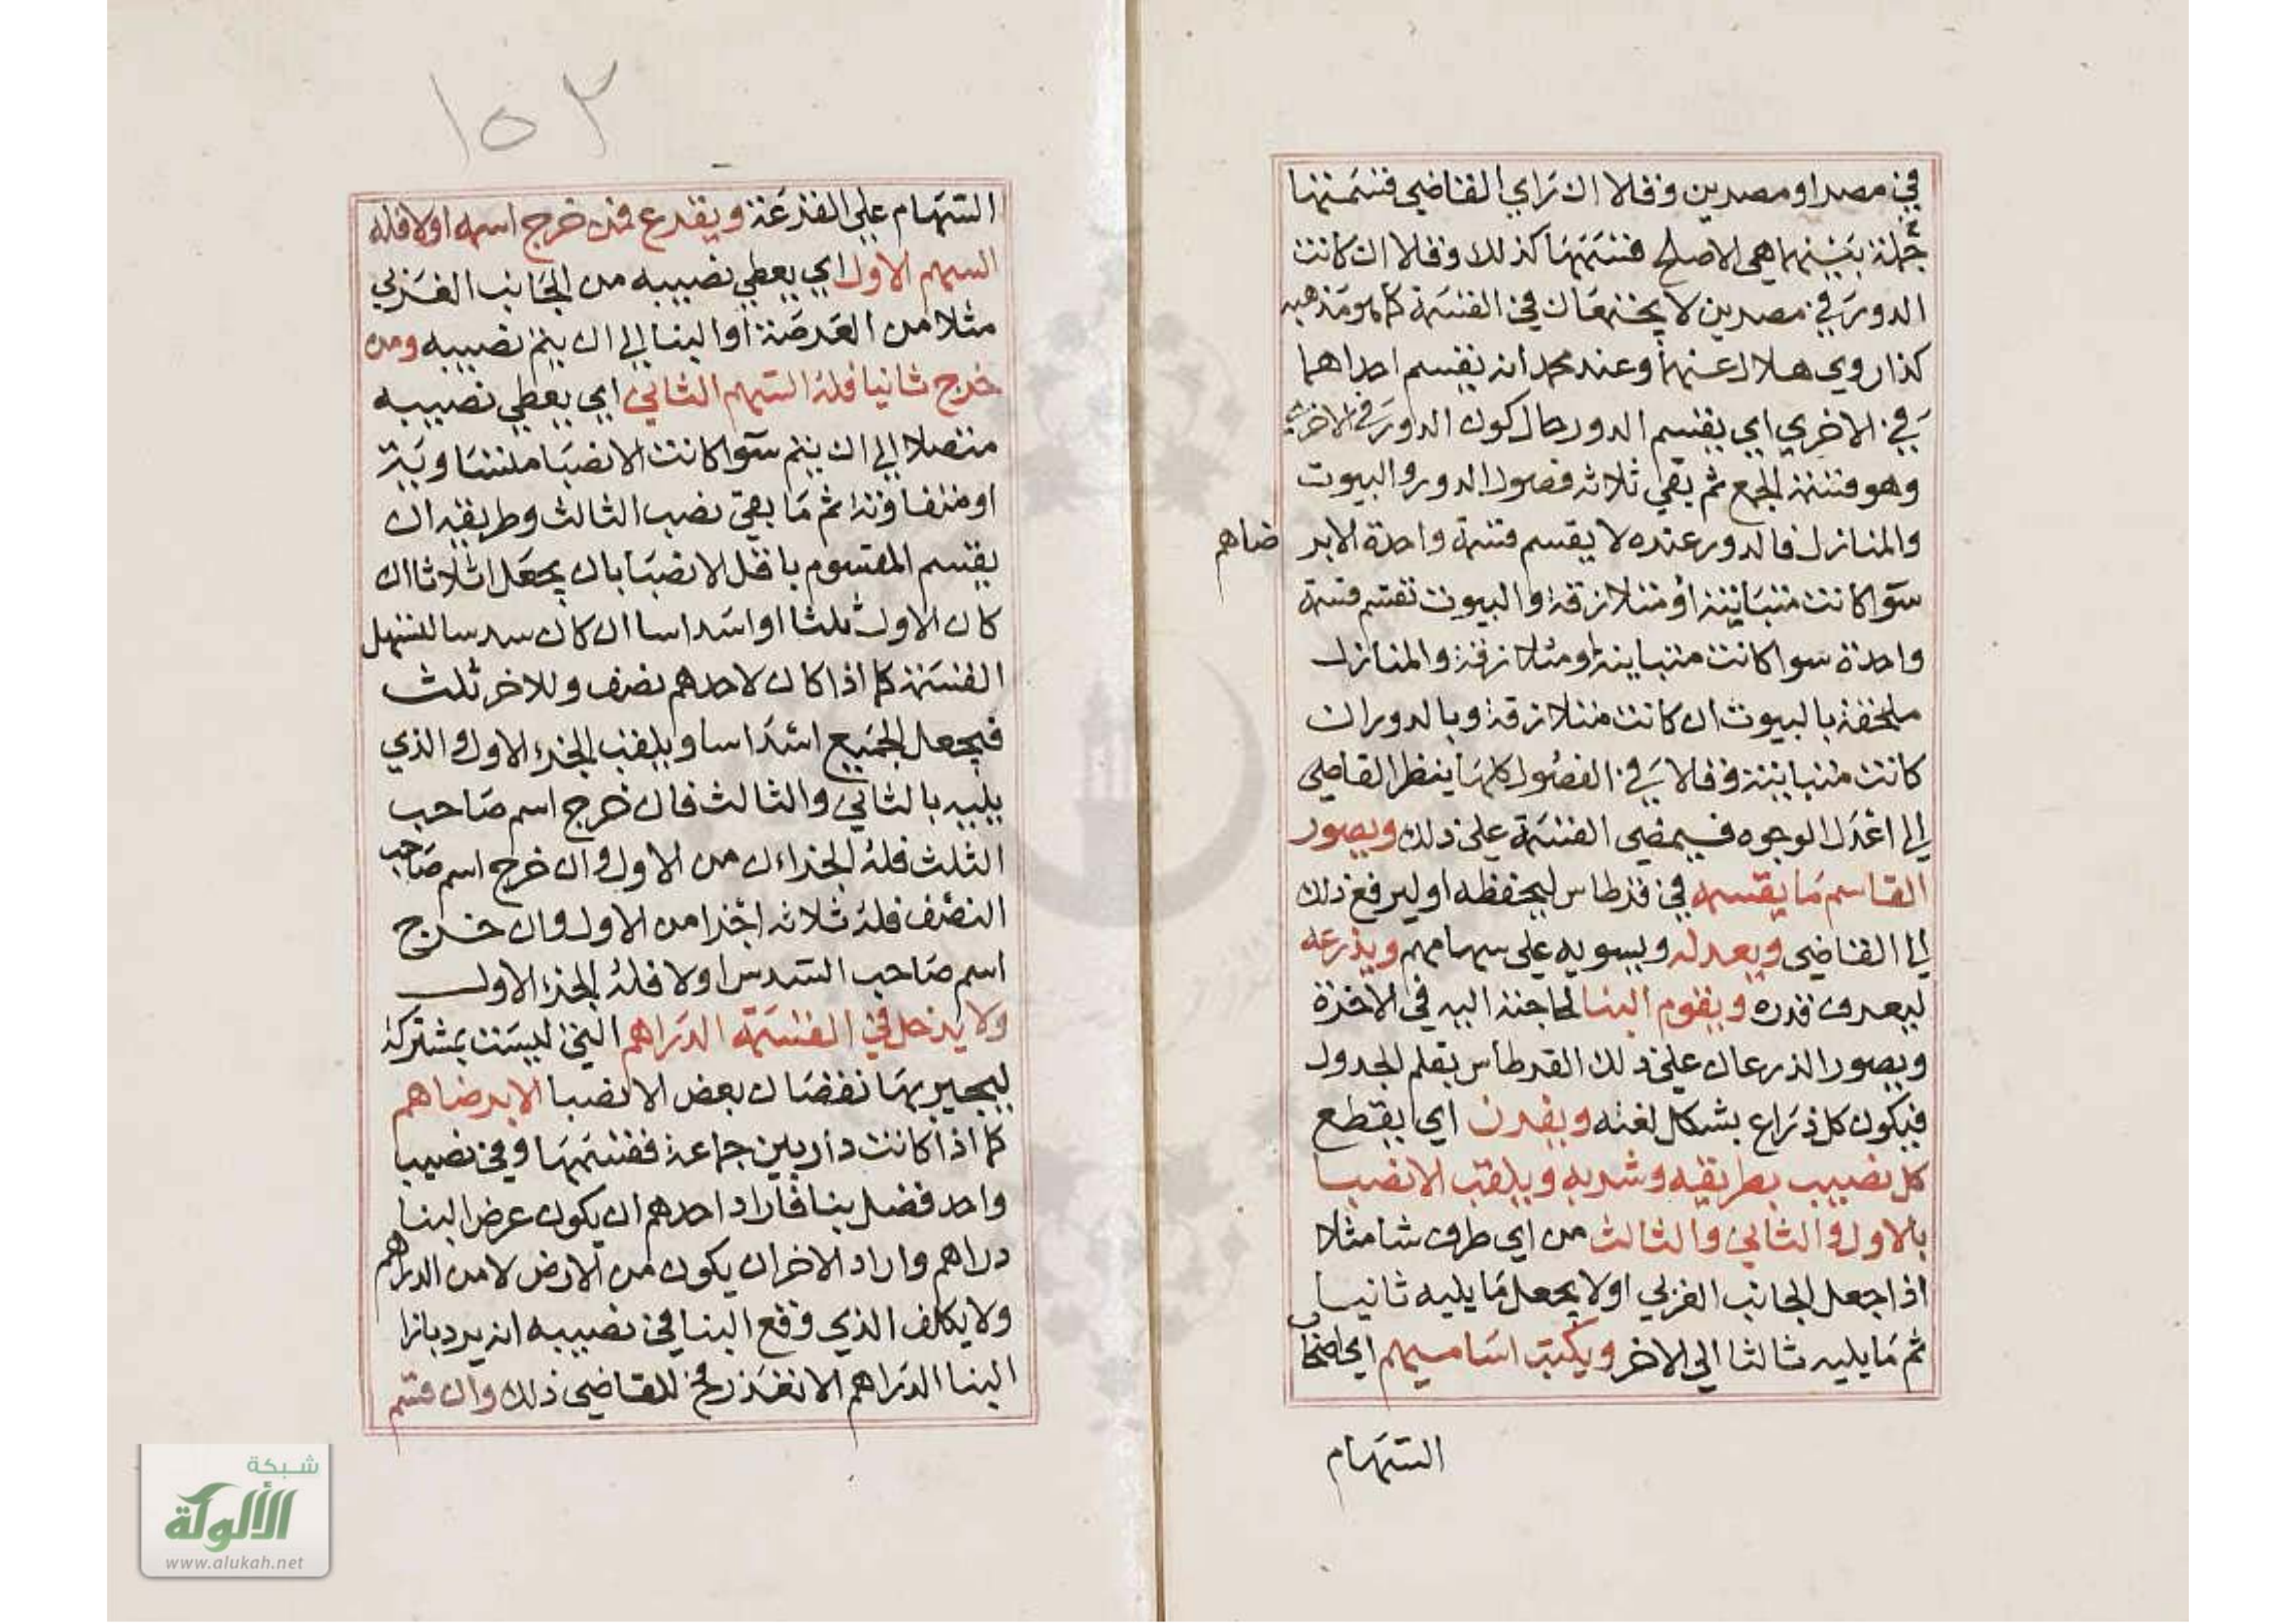 في مصر او مصرين وقالا ان راي القاضي قسمتها
جملة بينهما هي الاصلح قسمها كذلك وقالا ان كانت
الدور في مصرين لا يجتمعان في القسمة كما هو مذهبه
كذا روي هلال عنهما وعند محمد انه يقسم احداهما
في الاخري اي يقسم الدور حال كون الدور في الاخري
وهو قسمة الجمع ثم بقي ثلاثة فصول الدور والبيوت
والمنازل فالدور عنده لا يقسم قسمة واحدة الا بر ضاهم
سوا كانت متباينة او متلازقة والبيوت تقسم قسمة
واحدة سوا كانت متباينة او متلازقة والمنازل
ملحقة بالبيوت ان كانت متلازقة وبالدور ان
كانت متباينة وقالا في الفصول كلها ينظر القاضي
الي اعدل الوجوه فيمضي القسمة علي ذلك ويصور
القاسم ما يقسمه في قرطاس ليحفظه او ليرفع ذلك
الي القاضي ويعدله ويسويه علي سهامهم ويذرعه
ليعرف قدره ويقوم البنا لحاجته اليه في الاخذة
ويصور الذرعان علي ذلك القرطاس بقلم الجدول
فيكون كل ذراع بشكل لغته ويفرز اي يقطع
كل نصيب بطريقه وشربه ويلقب الانصبا
بالاول والثاني والثالث من اي طرف شا مثلا
اذا جعل الجانب الغربي اولا يجعل ما يليه ثانيا
ثم ما يليه ثالثا الي الاخر ويكتب اساميهم اي اصحاب
السهام
١٥٣
السهام علي القرعة ويقرع فمن خرج اسمه اولا فله
السهم الاول اي يعطي نصيبه من الجانب الغربي
مثلا من العرصة او البنا الي ان يتم نصيبه ومن
خرج ثانيا فله السهم الثاني اي يعطي نصيبه
متصلا الي ان يتم سوا كانت الانصبا متساوية
او متفاوتة ثم ما بقي نصب الثالث وطريقه ان
يقسم المقسوم باقل الانصبا بان يجعل اثلاثا ان
كان الاول ثلثا او اسداسا ان كان سدسا لتسهل
القسمة كما اذا كان لاحدهم نصف وللاخر ثلث
فيجعل الجميع اسداسا ويلقب الجزء الاول والذي
يليه بالثاني والثالث فان خرج اسم صاحب
الثلث فله الجزاءن من الاول وان خرج اسم صاحب
النصف فله ثلاثه اجزا من الاول وان خرج
اسم صاحب السدس اولا فله الجزء الاول
ولا يدخل في القسمة الدراهم التي ليست بمشتركة
ليجير بها نقصان بعض الانصبا الا برضاهم
كما اذا كانت دار بين جماعة فقسمها وفي نصيب
واحد فضل بنا فاراد احدهم ان يكون عرض البنا
دراهم واراد الاخر ان يكون من الارض لا من الدراهم
ولا يكلف الذي وقع البنا في نصيبه ان يرد بازا
البنا الدراهم الا تعذر فح للقاضي ذلك وان قسم
شبكة
الألوكة
www.alukah.net